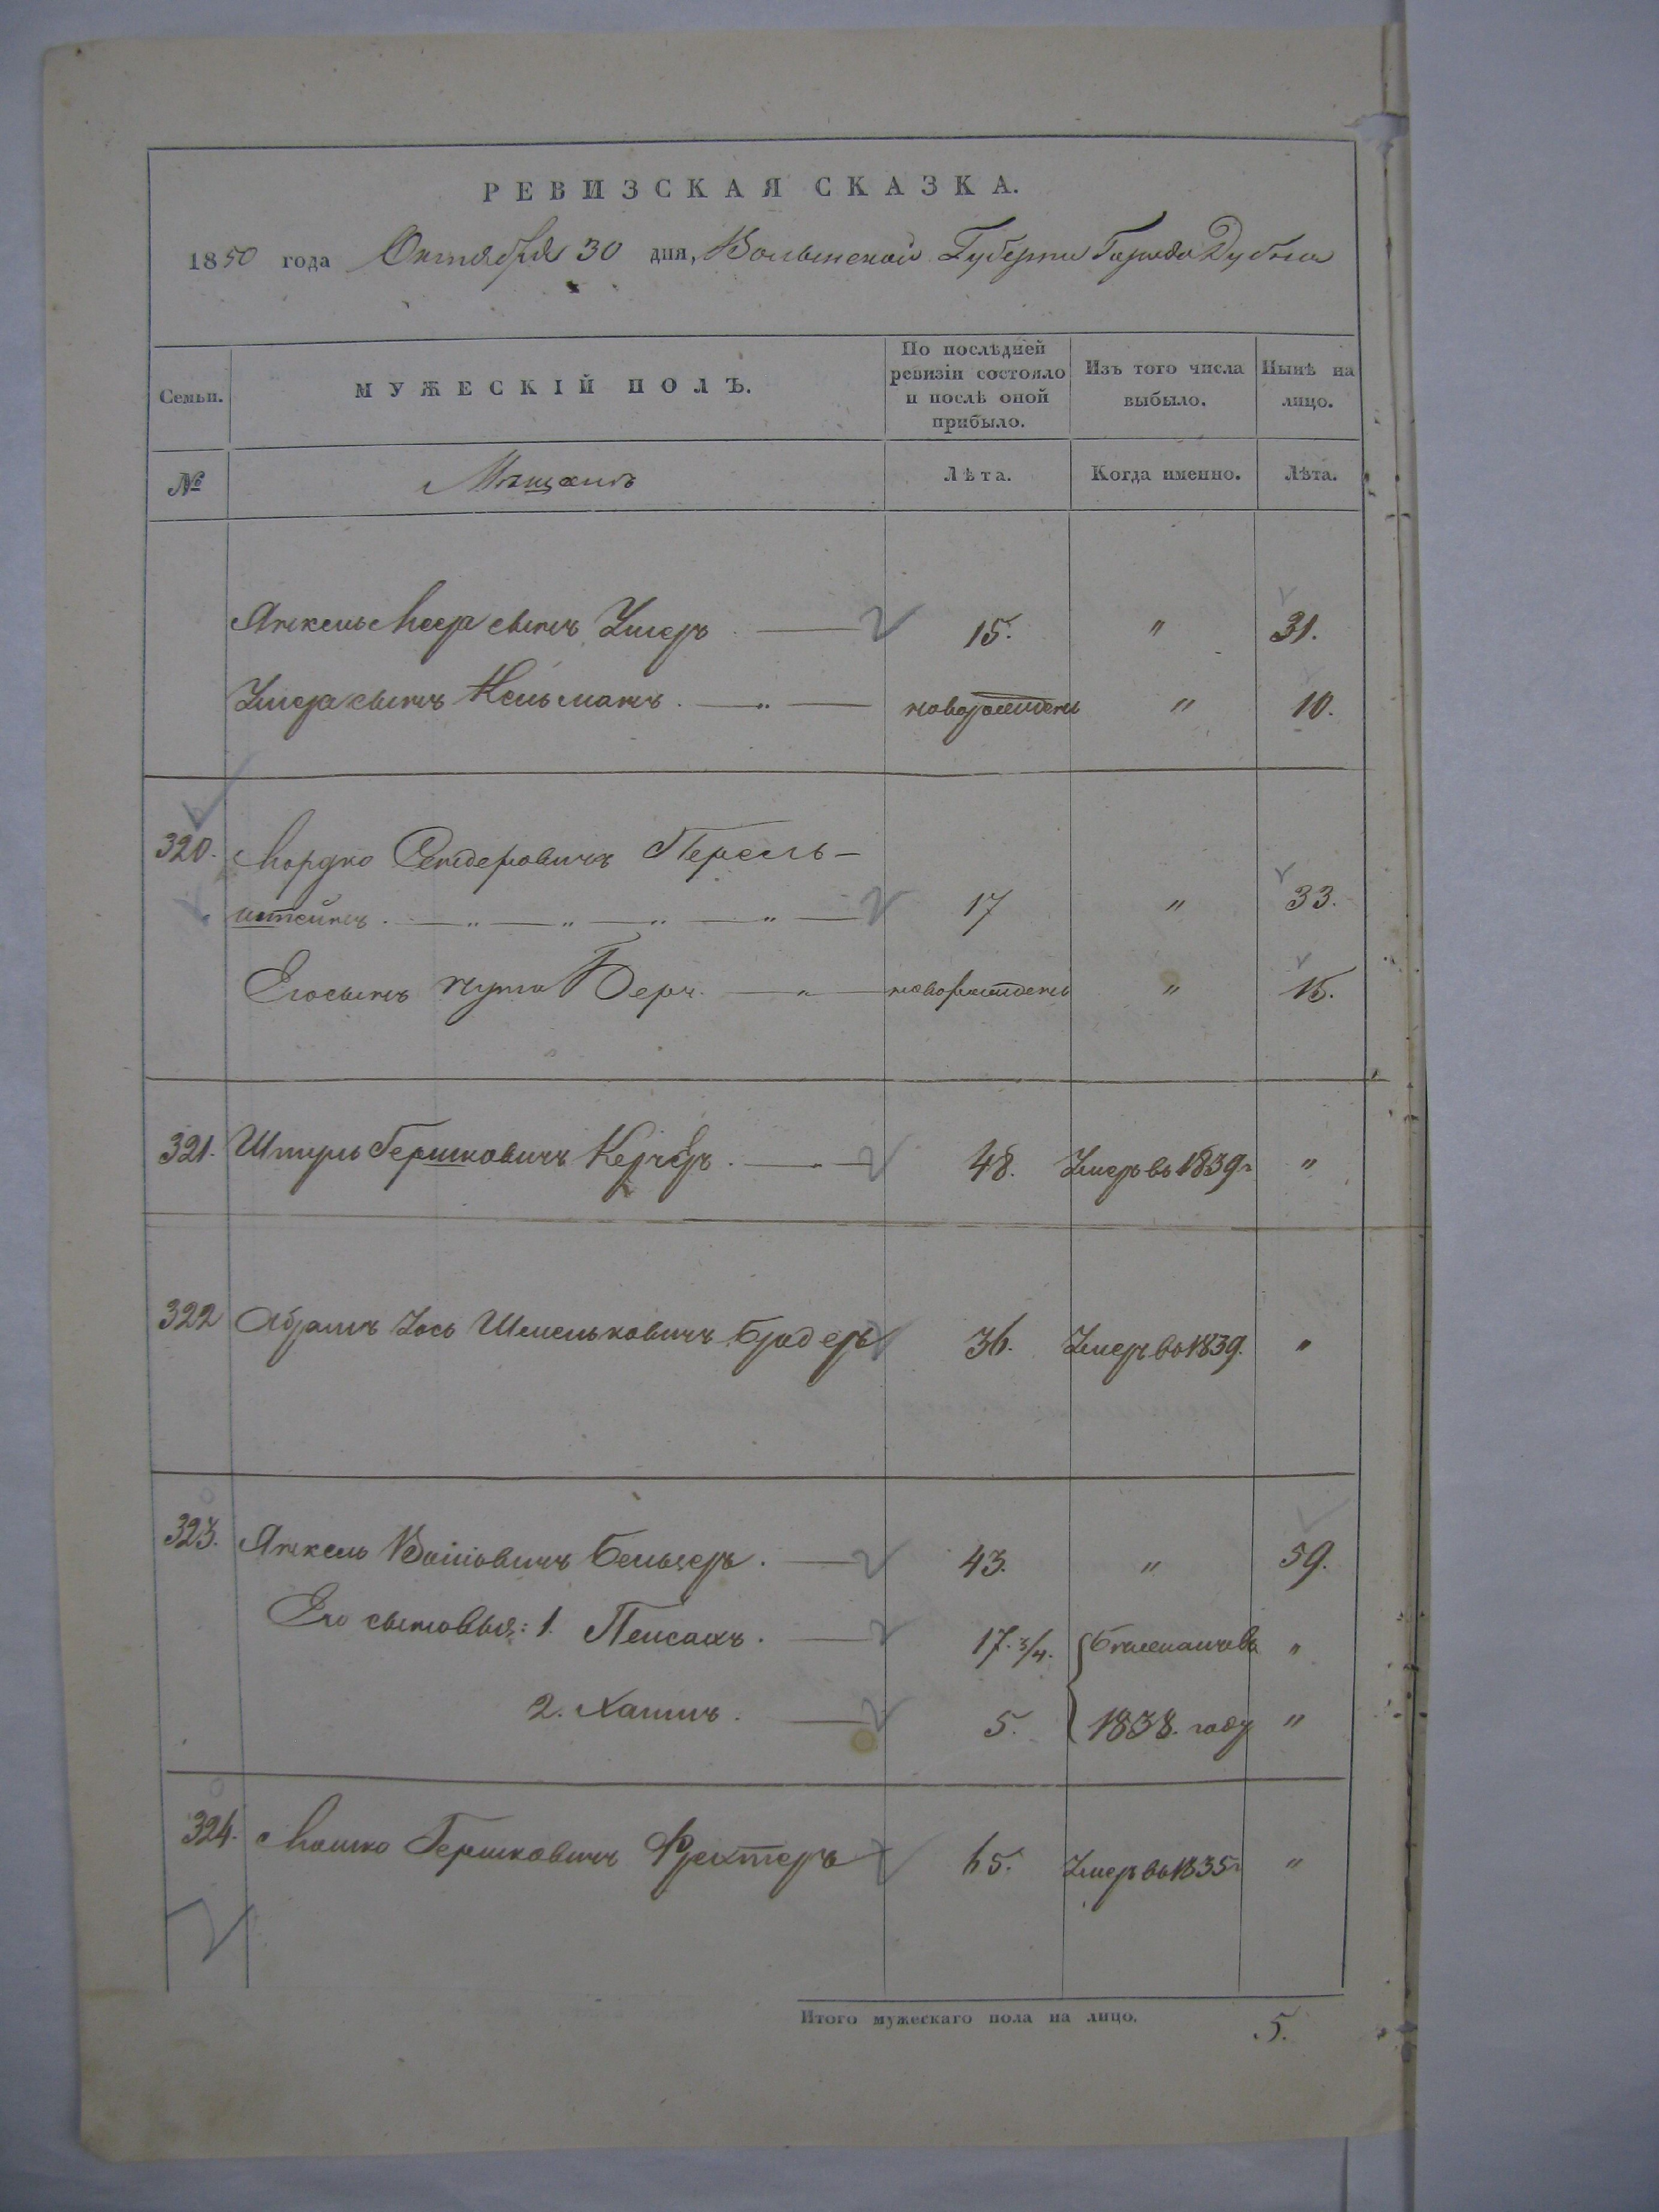 РЕВИЗСКАЯ СКАЗКА.
1850 года Октября 30 дня, Волынской Губерни Города Дубна
Семьи.
МУЖЕСКІЙ ПОЛЪ.
По послѣдней ревизіи состояло и послѣ оной прибыло.
Изъ того числа выбыло.
Нынѣ на лицо.
№
Мѣщанъ
Лѣта.
Когда именно.
Лѣта.
Янкель Меера сынъ Умеръ 15. " 31.
Умера сынъ Кельманъ. новорожденъ " 10.
320. Мордко Сендеровичъ Перель-
штейнъ. 17 " 33.
Его сынъ Нута Беръ. новорожденъ " 15.
321. Шмуль Гершковичъ 48. Умеръ въ 1839 г "
322 Абрамъ Іось Шмельковичъ Бридеръ 36. Умеръ въ 1839. "
323. Янкель Бельцеръ. 43. " 59.
Его сыновья: 1. Пейсахъ. 17.3/4. "
2. Хаимъ. 5. 1838. году "
324. Мошко Гершковичъ Фрехтеръ 65. Умеръ въ 1835 г "
Итого мужескаго пола на лицо. 5.